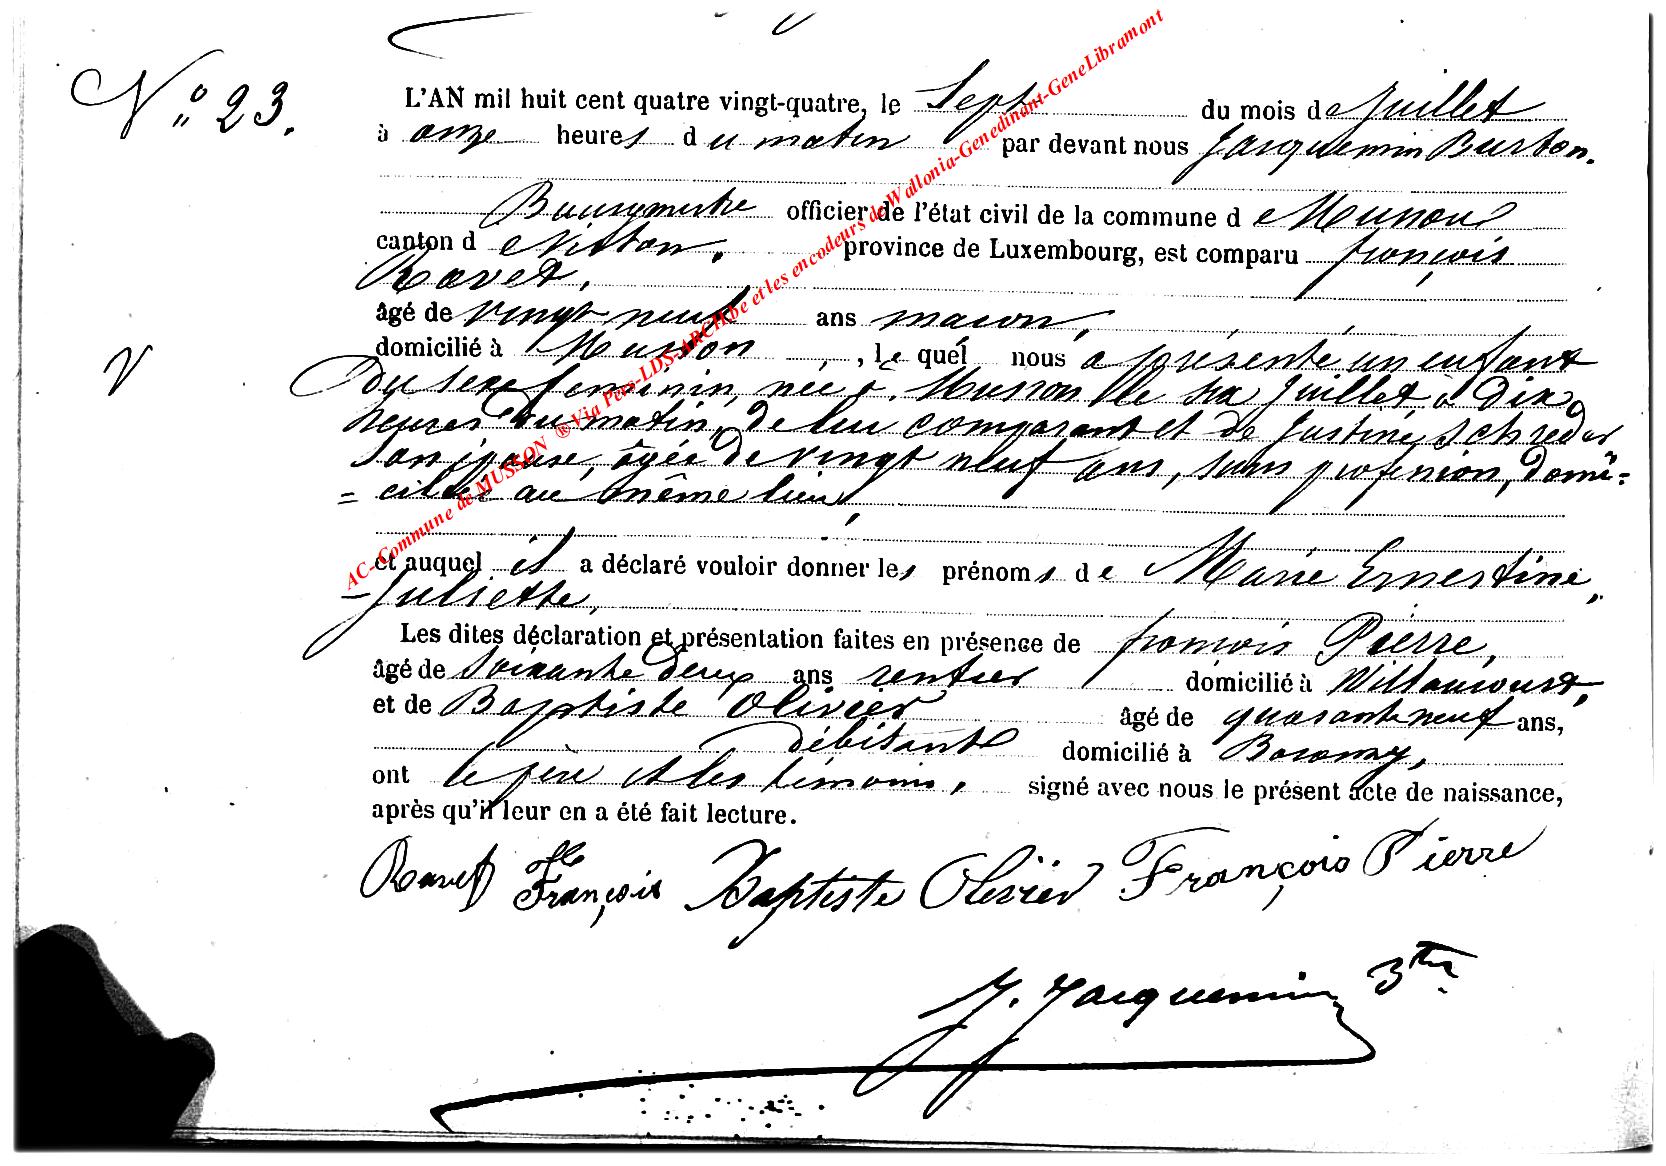 N° 23.
L'AN mil huit cent quatre vingt-quatre, le Sept du mois de Juillet
à onze heures du matin par devant nous Jacquemin Burton.
Bourgmestre officier de l'état civil de la commune de Musson
canton de Virton. province de Luxembourg, est comparu françois
Ravet,
âgé de vingt neuf ans maçon,
domicilié à Musson, le quel nous a présenté un enfant
V
du sexe feminin, née à Musson le six Juillet à dix
heures du matin, de lui comparant et de Justine Schreder
son épouse, âgée de vingt neuf ans, sans profession, domi=
=ciliée au même lieu,
et auquel il a déclaré vouloir donner les prénoms de Marie Ernestine,
Juliette,
Les dites déclaration et présentation faites en présence de françois Pierre,
âgé de soixante deux ans rentier domicilié à Villancourt,
et de Baptiste Olivier âgé de quarante neuf ans,
débitant domicilié à
ont le père et les témoins, signé avec nous le présent acte de naissance,
après qu'il leur en a été fait lecture.
Ravet François Baptiste Olivier François Pierre
J. Jacquemin Btre
AC-Commune de MUSSON ® Via Pers-LDS-ARCH.be et les encodeurs de Wallonia-Genedinant-GeneLibramont